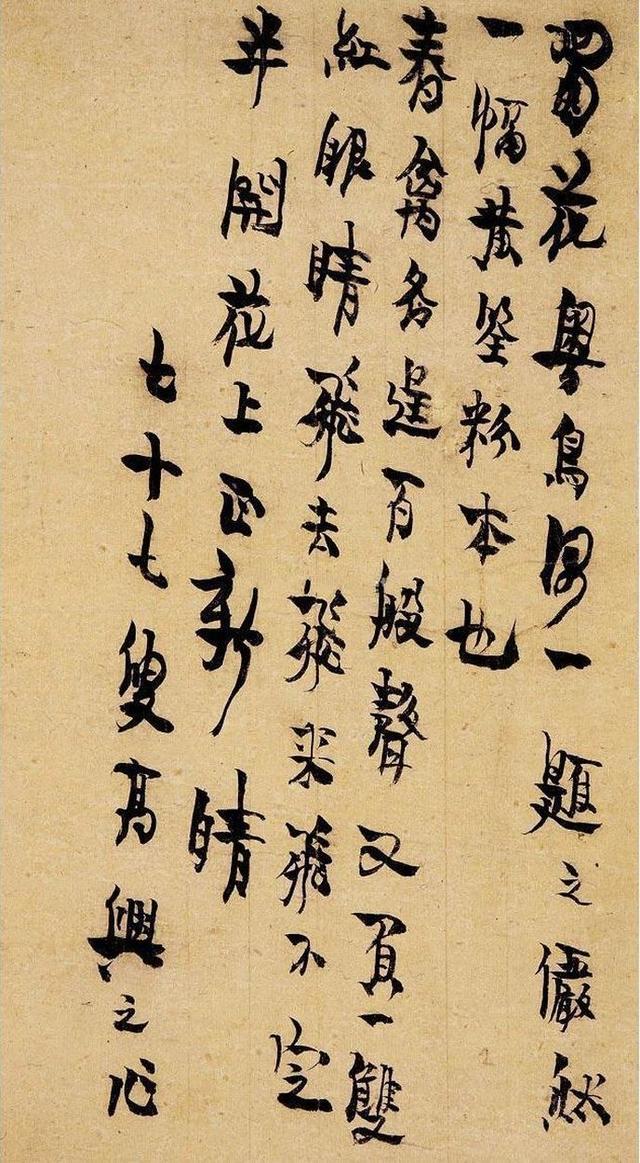 蜀花粵鳥一題之儼然
一幅黃筌粉本也
春禽各逞百般聲又負一雙
紅眼睛飛去飛來飛不定
半開花上正新晴
七十七叟高興之作